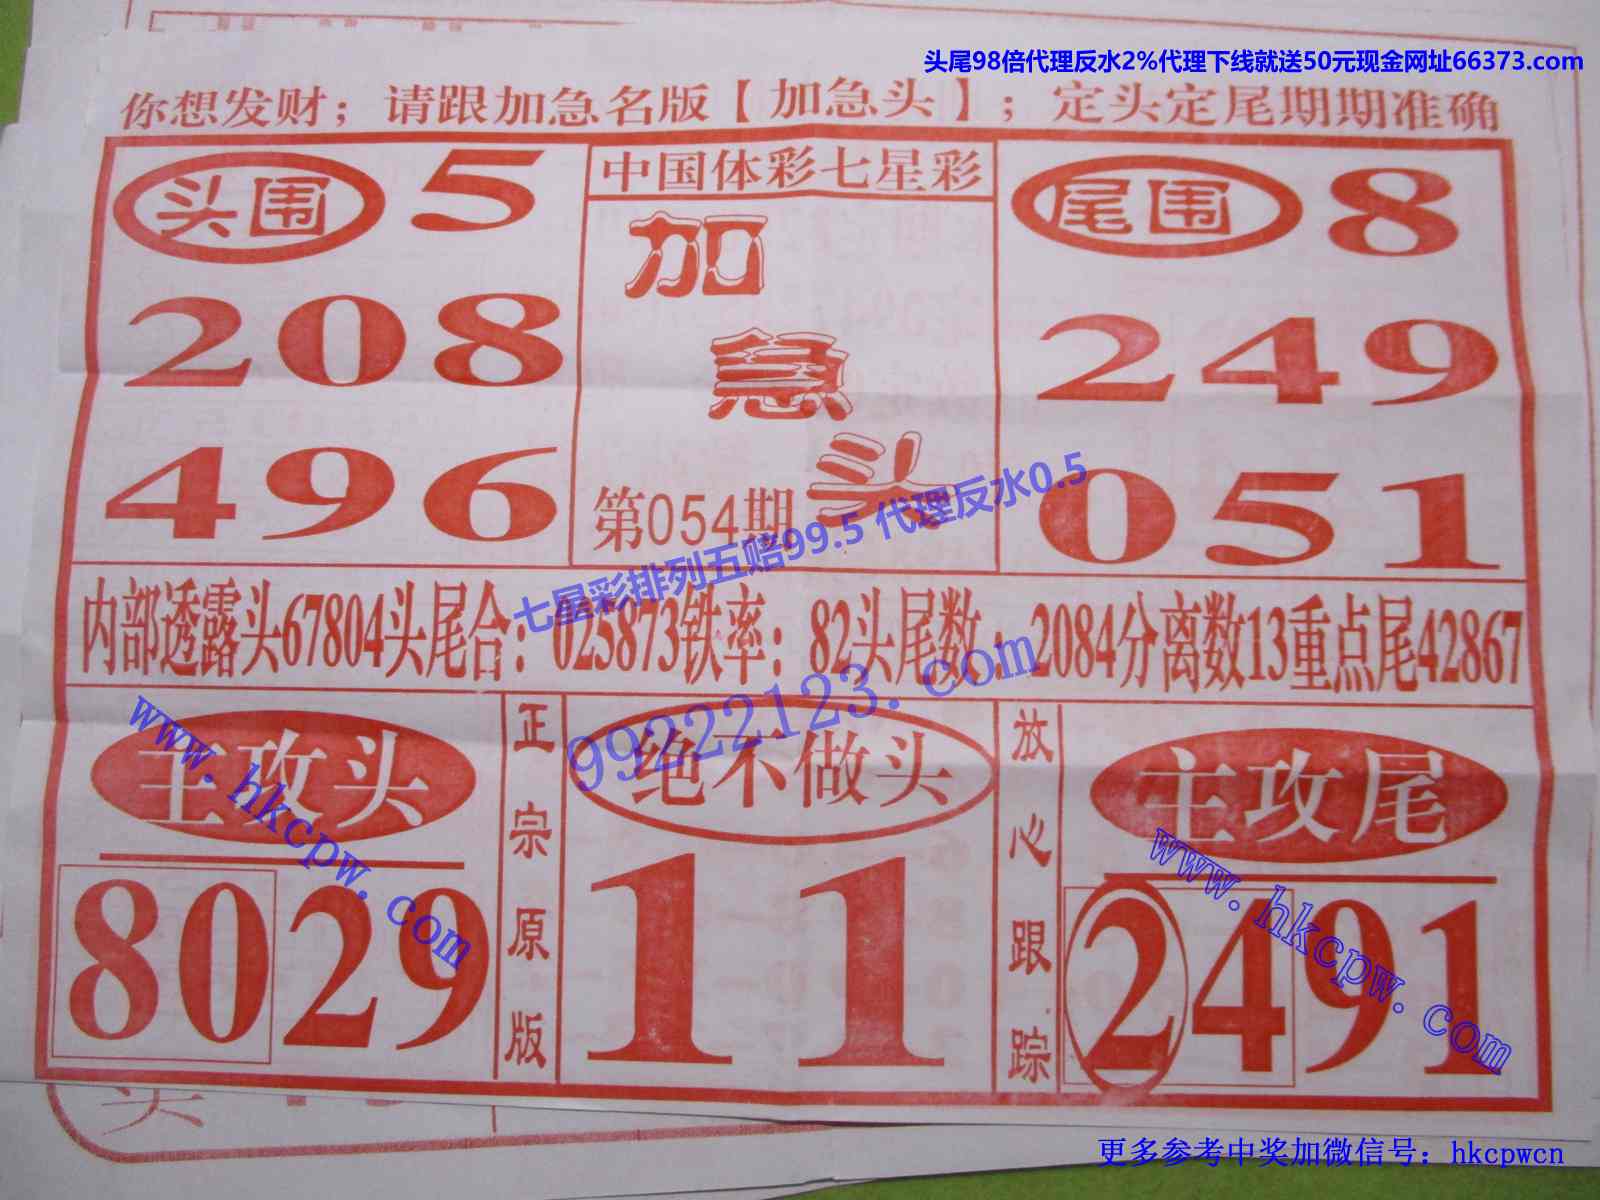 头尾98倍代理反水2%代理下线就送50元现金网址66373.com
你想发财；请跟加急名版【加急头】；定头定尾期期准确
头围 5
208
496
中国体彩七星彩
加
急
头
第054期
尾围 8
249
051
七星彩排列五赔99.5 代理反水0.5
内部透露头67804头尾合：025873铁率：82头尾数：2084分离数13重点尾42867
99222123.com
主攻头
8029
www.hkcpw.com
正宗原版
绝不做头
11
放心跟踪
主攻尾
2491
www.hkcpw.com
头
更多参考中奖加微信号：hkcpwcn